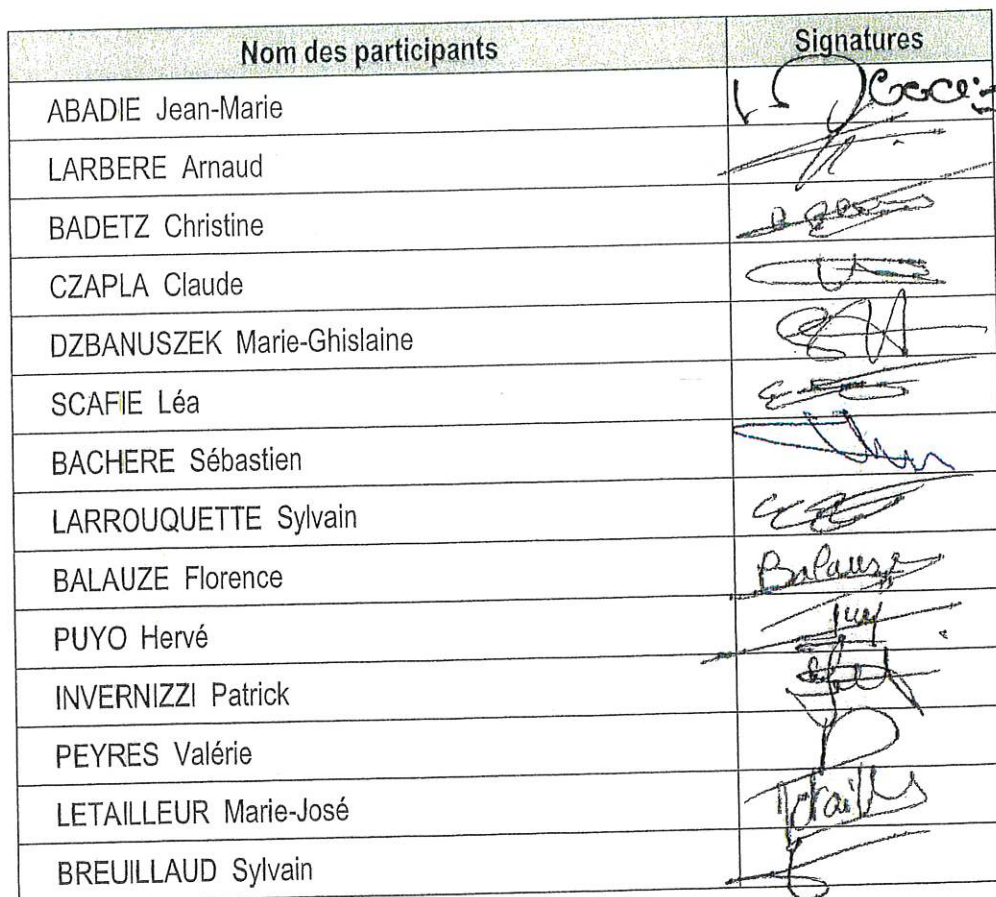 Nom des participants Signatures
ABADIE Jean-Marie
LARBERE Arnaud
BADETZ Christine
CZAPLA Claude
DZBANUSZEK Marie-Ghislaine
SCAFIE Léa
BACHERE Sébastien
LARROUQUETTE Sylvain
BALAUZE Florence Balauze
PUYO Hervé
INVERNIZZI Patrick
PEYRES Valérie
LETAILLEUR Marie-José
BREUILLAUD Sylvain